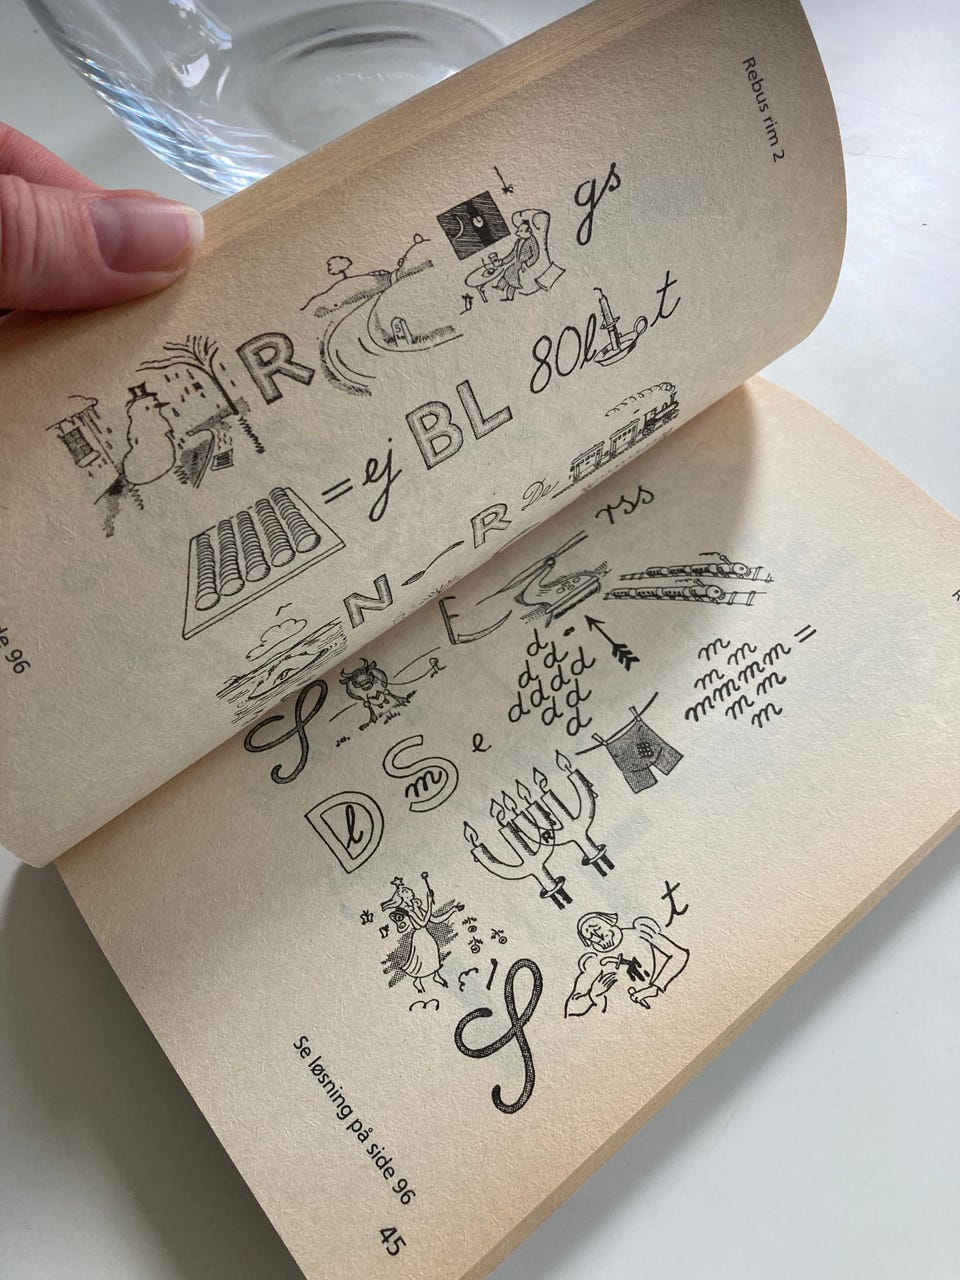 Rebus rim 2
R gs
= ej BL 80l t
N R De
de 96
E rss
l
d
d d
d d d d
d d
d
m
m m
m m m m =
m m
m
D l S m e
R
t
Se løsning på side 96
45